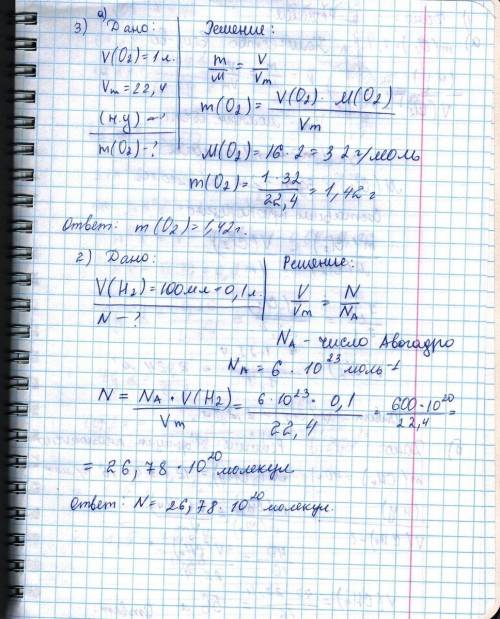 3) а) Дано:
V(O₂)=1 л.
Vm=22,4
(н.у) –
m(O₂)–?
Решение:
m/M = V/Vm
m(O₂) = V(O₂) · M(O₂) / Vm
M(O₂)=16·2=32 г/моль
m(O₂) = 1·32 / 22,4 = 1,42 г
Ответ: m(O₂)=1,42г.
г) Дано:
V(H₂)=100мл=0,1л.
N–?
Решение:
V/Vm = N/NA
NA – число Авогадро
NA = 6 · 10²³ моль⁻¹
N = NA · V(H₂) / Vm = 6·10²³ · 0,1 / 22,4 = 600·10²⁰ / 22,4 =
= 26,78 · 10²⁰ молекул
Ответ: N = 26,78 · 10²⁰ молекул.